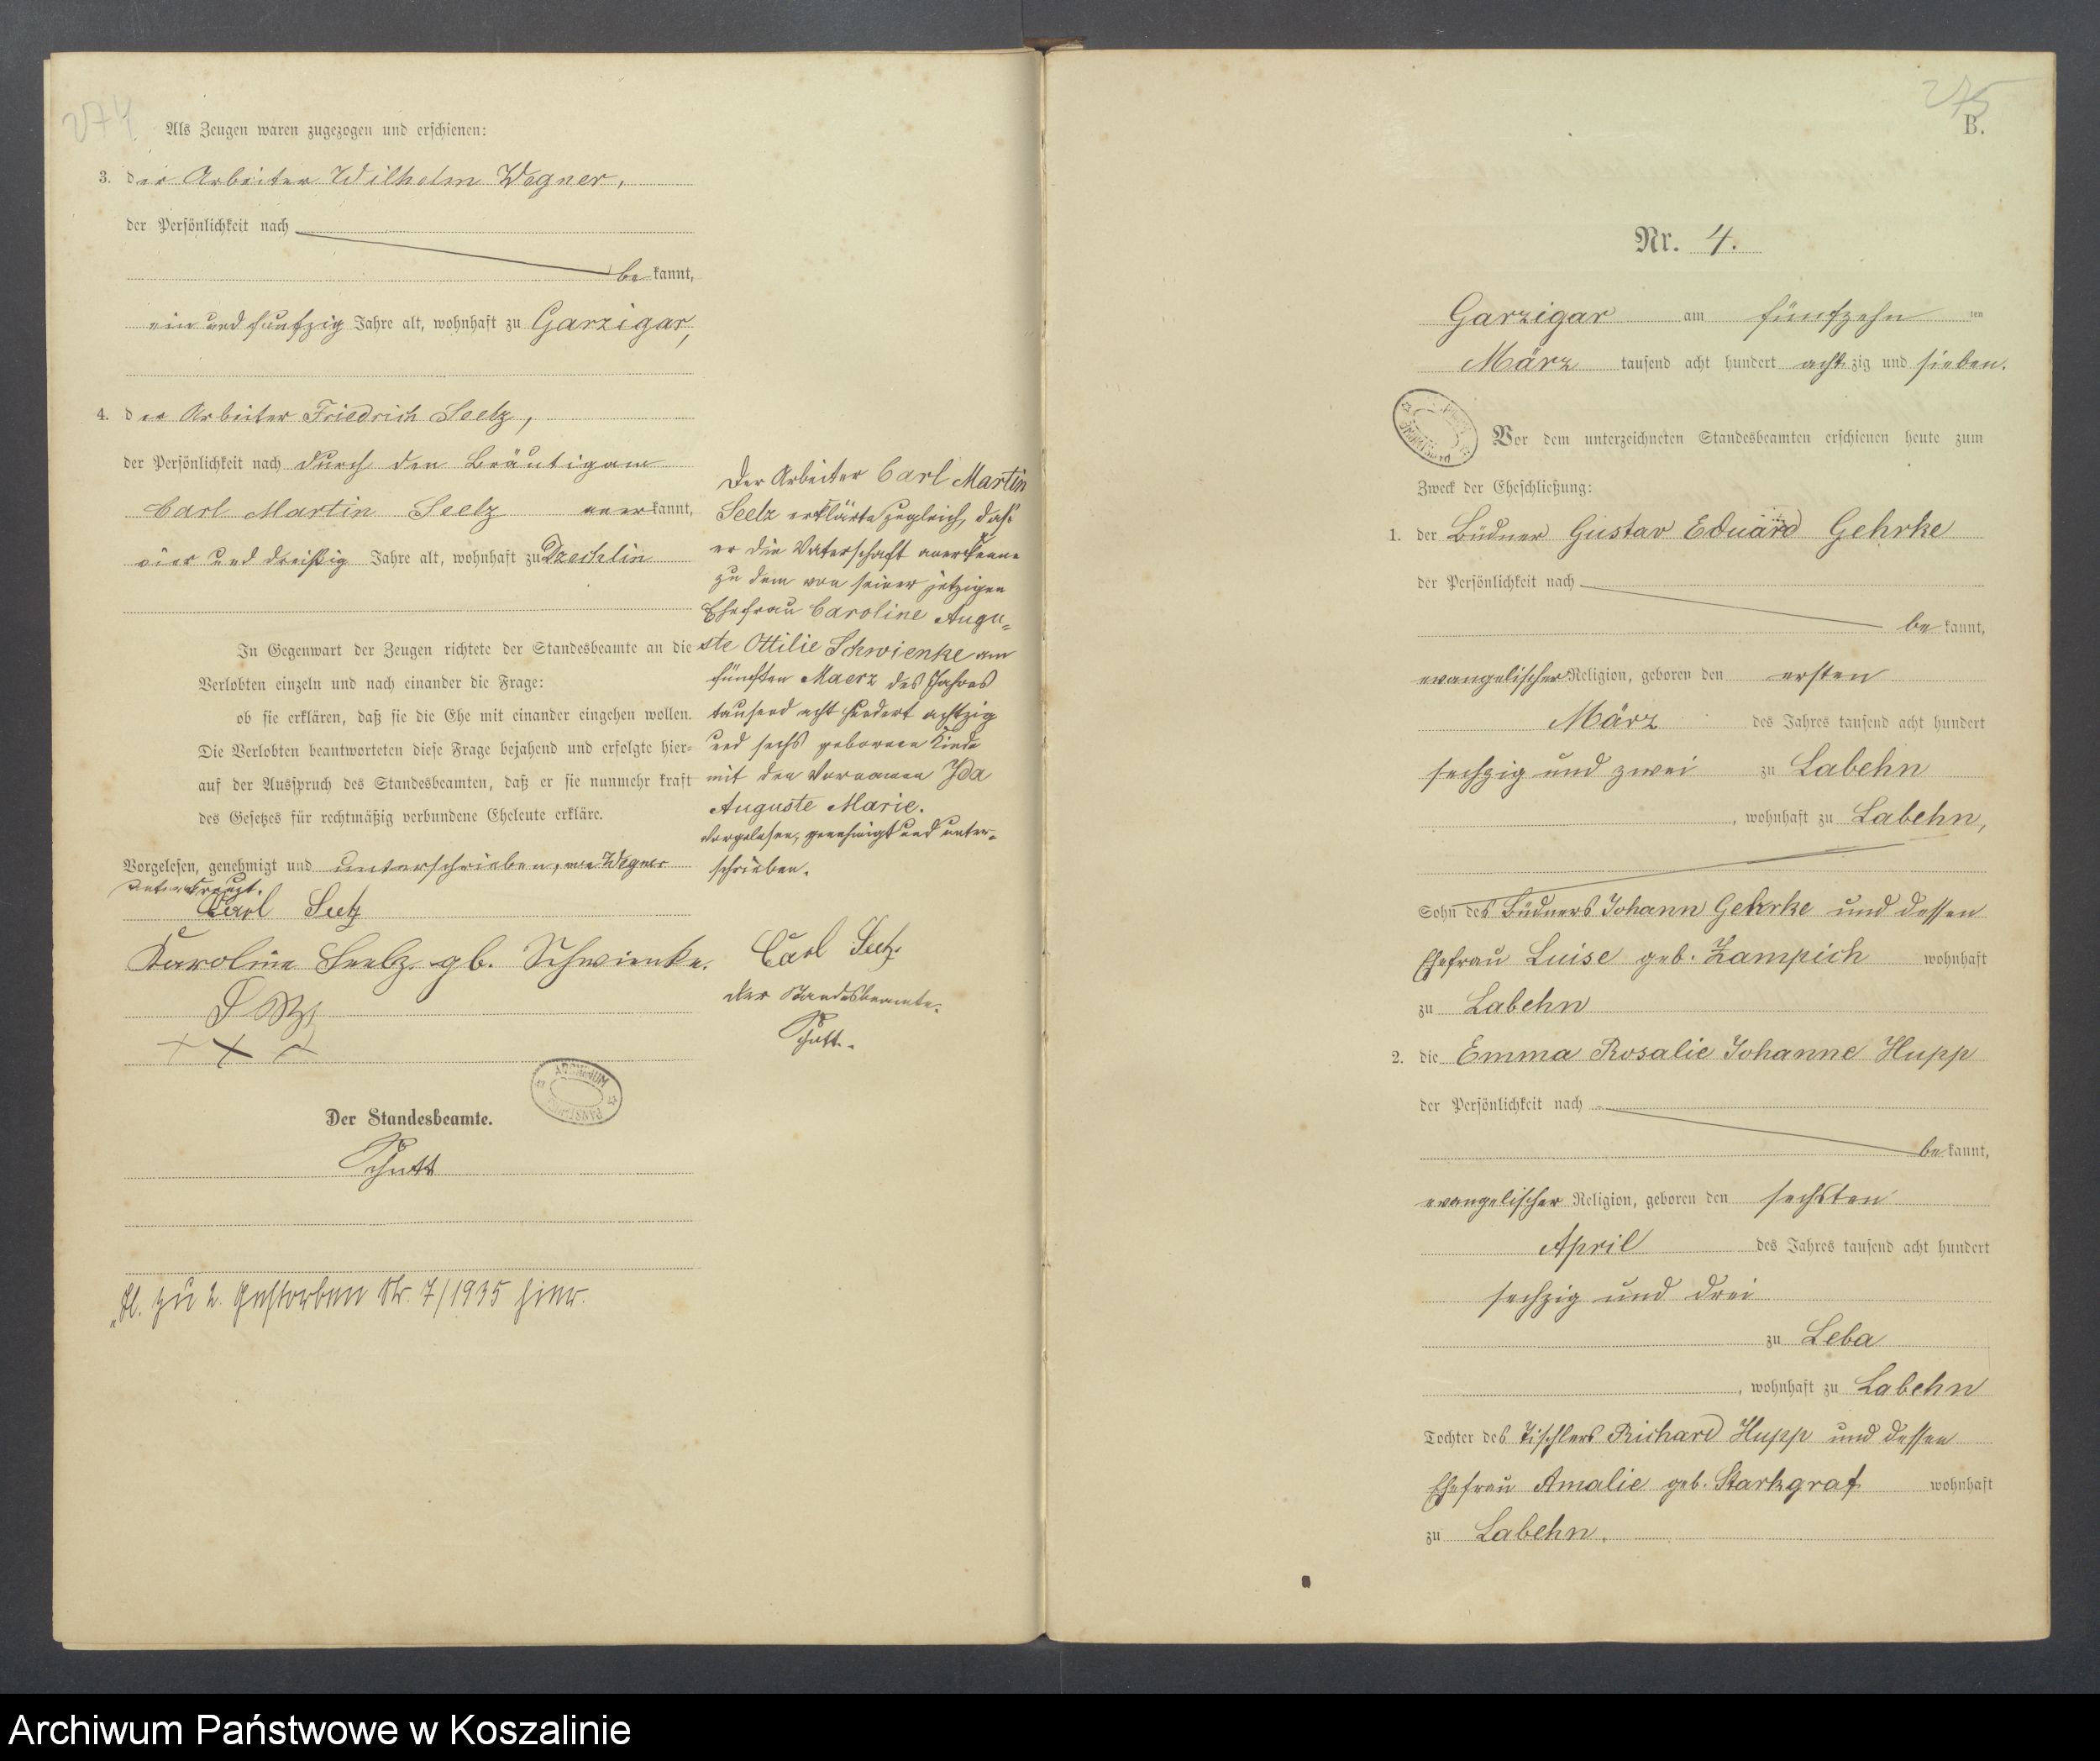 274
Als Zeugen waren zugezogen und erschienen:
3. der Arbeiter Wilhelm Wegner,
der Persönlichkeit nach
bekannt,
ein und funfzig Jahre alt, wohnhaft zu Garzigar,
4. der Arbeiter Friedrich Seelz,
der Persönlichkeit nach durch den Bräutigam
Carl Martin Seelz anerkannt,
vier und dreißig Jahre alt, wohnhaft zu Dzechlin
In Gegenwart der Zeugen richtete der Standesbeamte an die
Verlobten einzeln und nach einander die Frage:
ob sie erklären, daß sie die Ehe mit einander eingehen wollen.
Die Verlobten beantworteten diese Frage bejahend und erfolgte hier-
auf der Ausspruch des Standesbeamten, daß er sie nunmehr kraft
des Gesetzes für rechtmäßig verbundene Eheleute erkläre.
Vorgelesen, genehmigt und unterschrieben, von Wegner
unterkreuzt.
Carl Seelz
Karoline Seelz gb. Schwienke.
+ + +
Der Standesbeamte.
Schutt
zu 2. Gestorben Nr. 7/1935 hier.
Der Arbeiter Carl Martin
Seelz erklärte zugleich, daß
er die Vaterschaft anerkenne
zu dem von seiner jetzigen
Ehefrau Caroline Augu=
ste Ottilie Schwienke am
fünften Maerz des Jahres
tausend acht hundert achtzig
und sechs geborenen Kinde
mit den Vornamen Ida
Auguste Marie.
Vorgelesen, genehmigt und unter-
schrieben.
Carl Seelz.
Der Standesbeamte.
Schutt.
ARCHIWUM
275
B.
Nr. 4.
Garzigar am fünfzehn ten
März tausend acht hundert achtzig und sieben.
Vor dem unterzeichneten Standesbeamten erschienen heute zum
Zweck der Eheschließung:
1. der Büdner Gustav Eduard Gehrke
der Persönlichkeit nach
bekannt,
evangelischer Religion, geboren den ersten
März des Jahres tausend acht hundert
sechzig und zwei zu Labehn
, wohnhaft zu Labehn,
Sohn des Büdners Johann Gehrke und dessen
Ehefrau Luise geb. Zampich wohnhaft
zu Labehn
2. die Emma Rosalie Johanne Hupp
der Persönlichkeit nach
bekannt,
evangelischer Religion, geboren den sechsten
April des Jahres tausend acht hundert
sechzig und drei
zu Leba
, wohnhaft zu Labehn
Tochter des Tischlers Richard Hupp und dessen
Ehefrau Amalie geb. Starkgraf wohnhaft
zu Labehn.
Archiwum Państwowe w Koszalinie